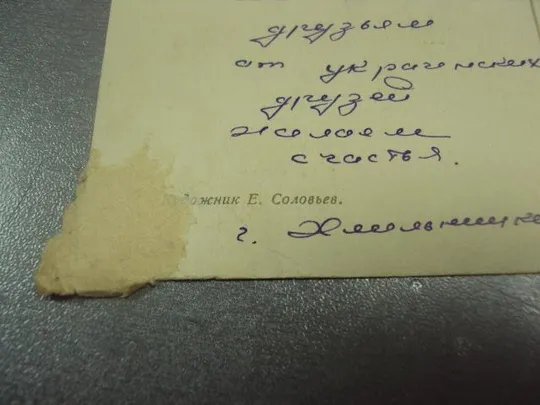 друзьям
от украинских
друзей
желаем
счастья.
Художник Е. Соловьев.
г. Хмельницк